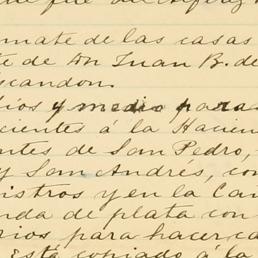 nmate de las casas
te de Don Juan B. de
scandon.
ios y medio para
cientes á la Hacien
ntes de San Pedro,
y San Andrés, co
istros y en la Can
nda de plata con
rios para hacer ca
está copiado á la